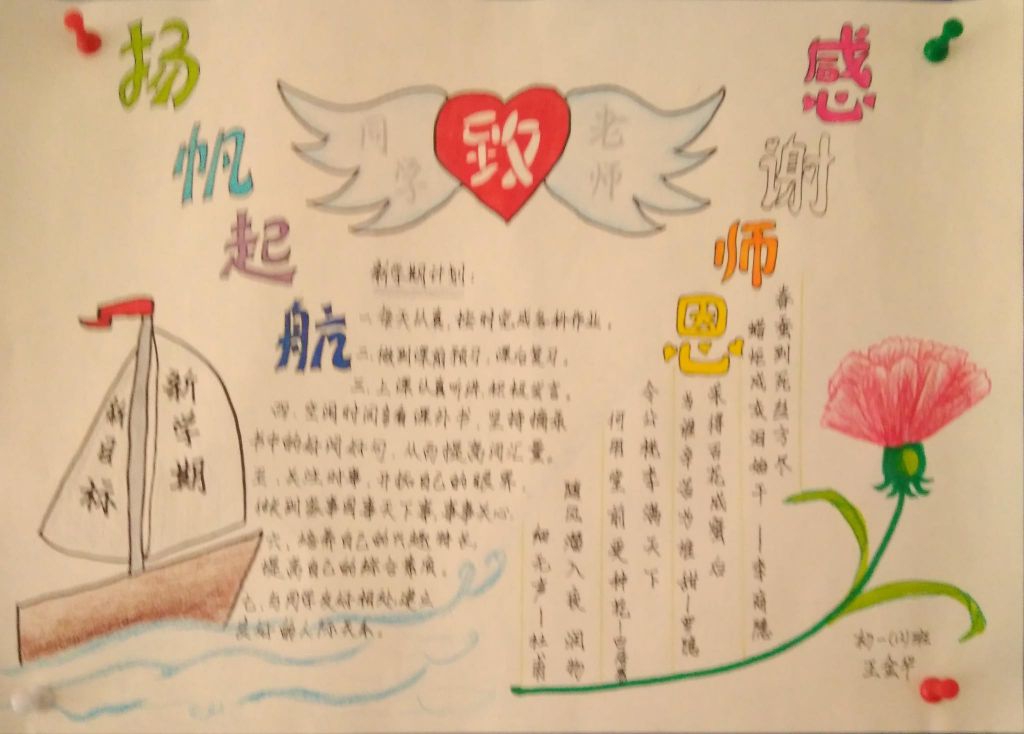 扬帆起航
同学
致
老师
感谢师恩
新学期计划：
一.每天认真，按时完成各科作业。
二.做到课前预习，课后复习。
三.上课认真听讲，积极发言。
四.空闲时间多看课外书，坚持摘录
书中的好词好句，从而提高词汇量。
五.关注时事，开拓自己的眼界，
做到家事国事天下事，事事关心。
六.培养自己的兴趣特长，
提高自己的综合素质。
七.与同学友好相处，建立
良好的人际关系。
新学期
我目标
春蚕到死丝方尽
蜡炬成灰泪始干——李商隐
采得百花成蜜后
为谁辛苦为谁甜—罗隐
令公桃李满天下
何用堂前更种花—白居易
随风潜入夜 润物
细无声—杜甫
初一(13)班
王金华